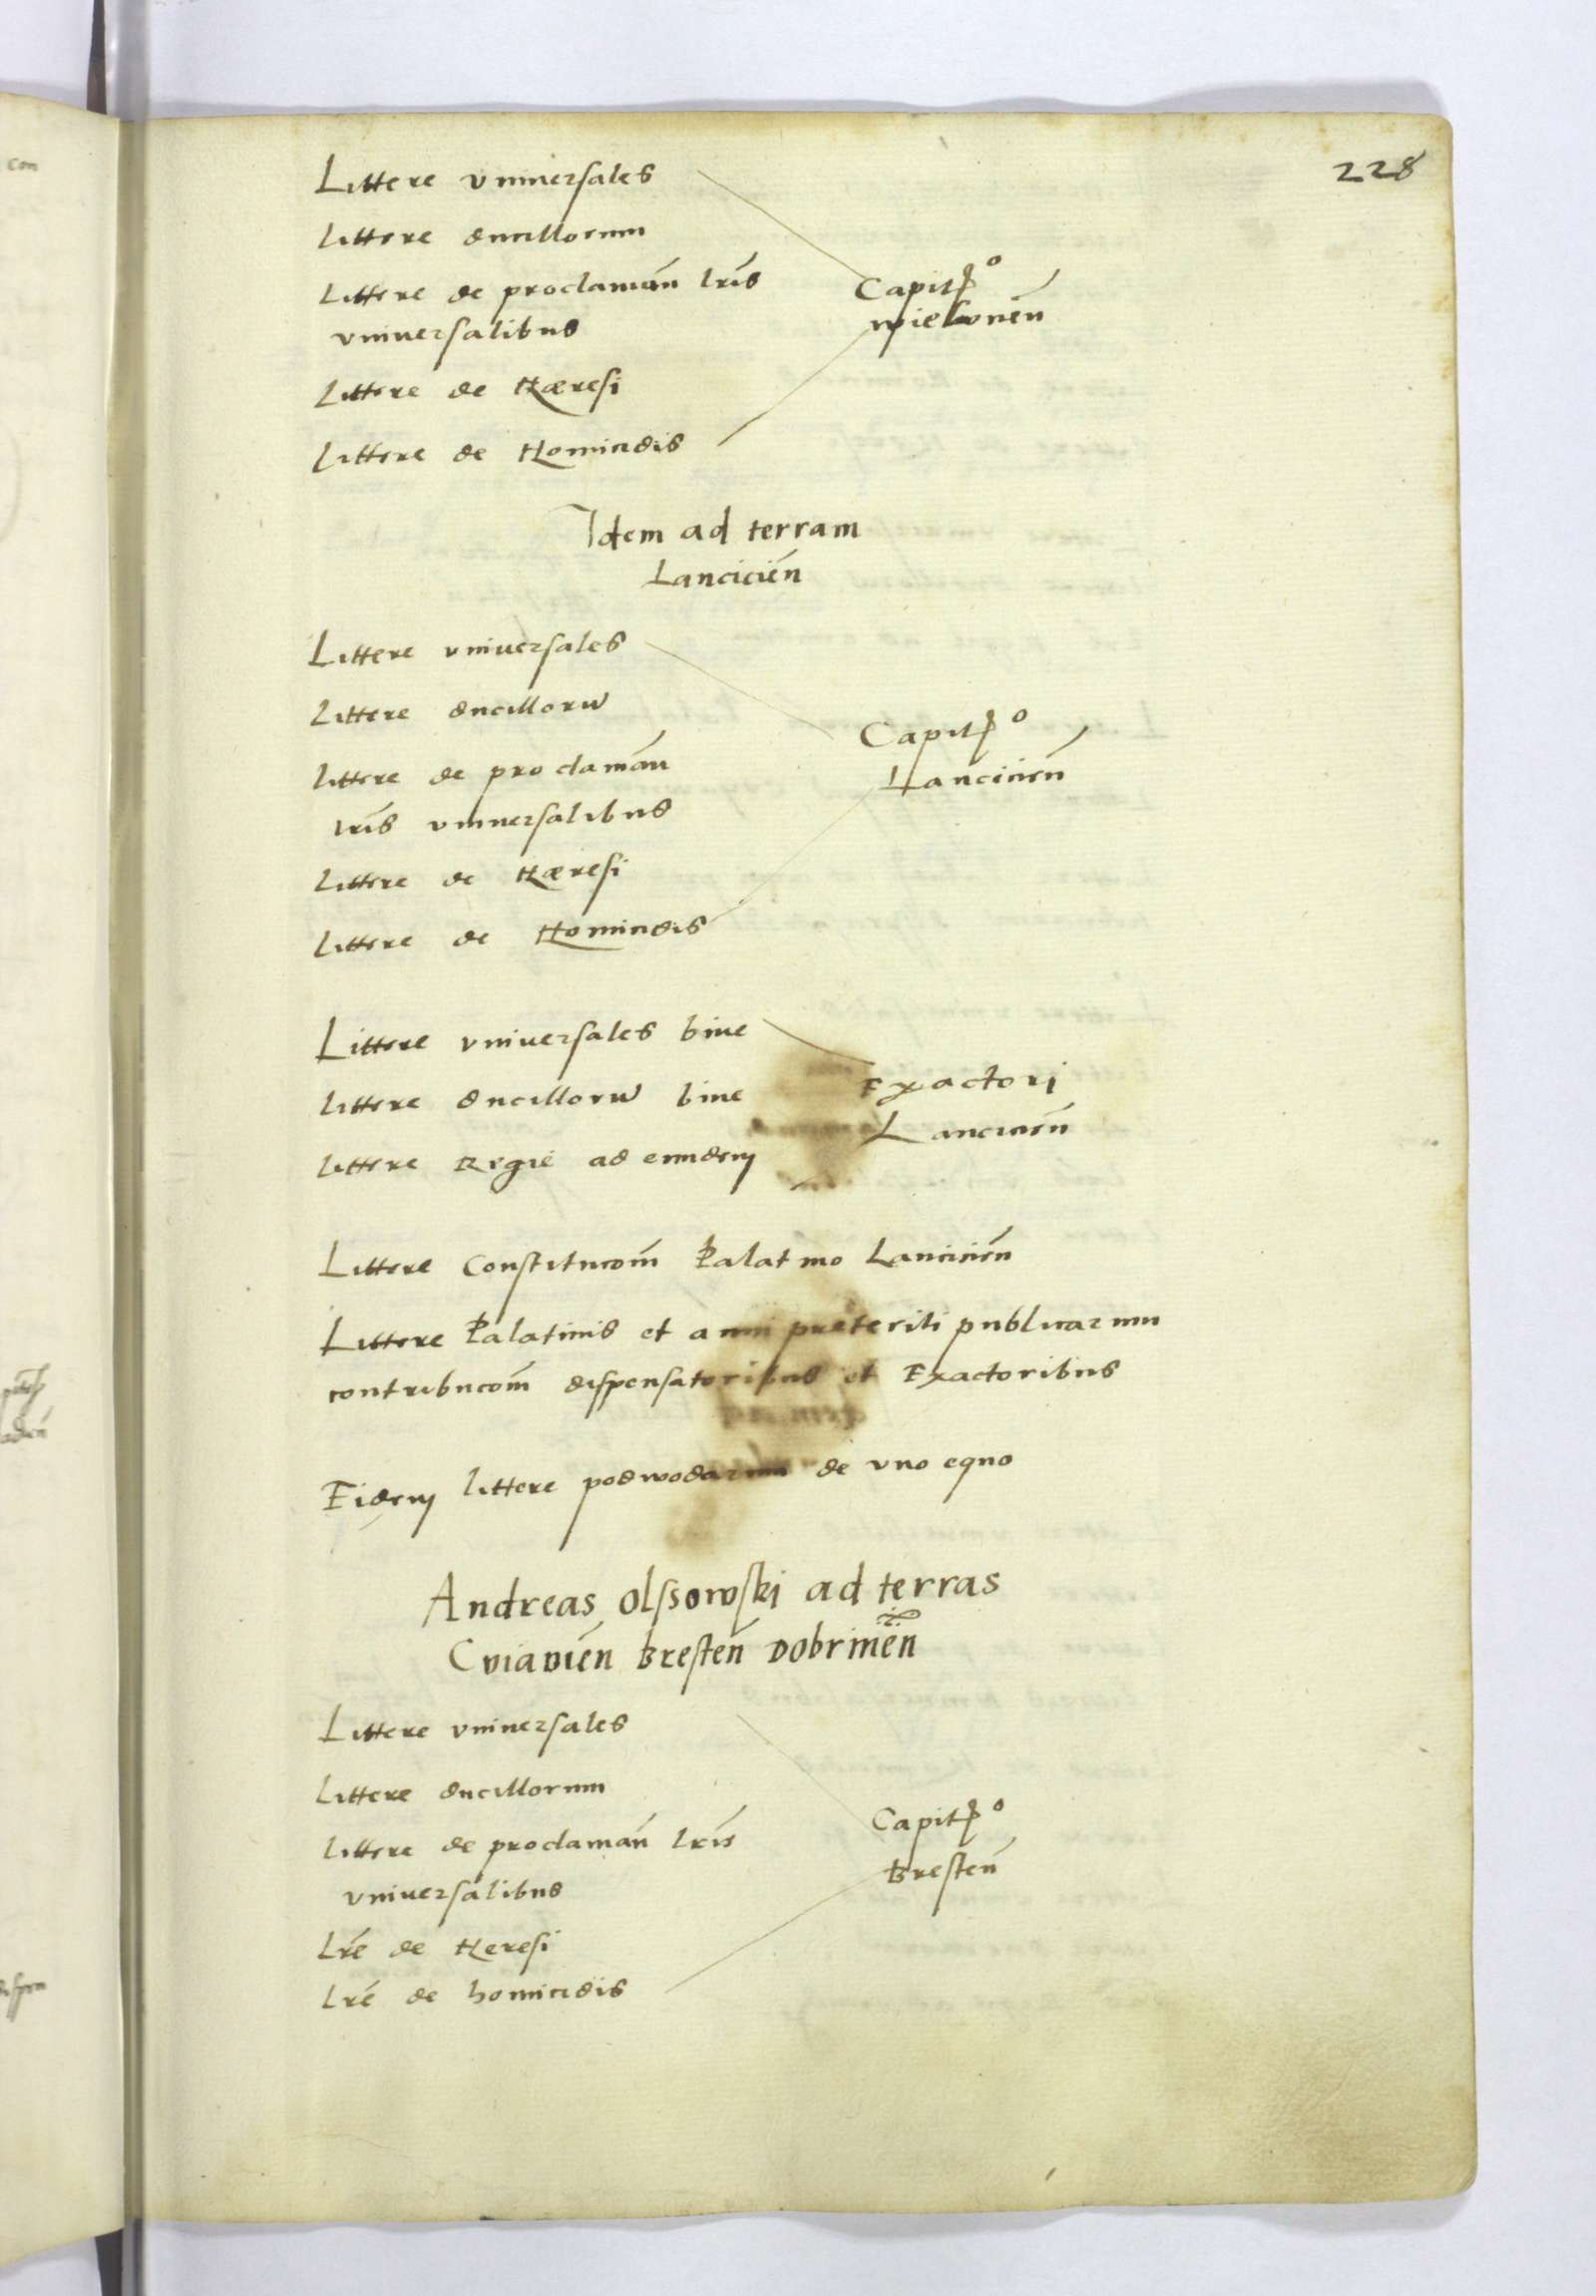 228
Littere vniuersales
littere ducillorum
Littere de proclamań lr̃is
vniuersalibus
Capitꝭo
wieluneń
Littere de Hæresi
Littere de Homicidis
Idem ad terram
Lancicień
Littere vniuersales
Littere ducilloru̅
littere de proclamań
lr̃is vniuersalibus
Capitꝭo
Lancicień
Littere de Hæresi
littere de Homicidis
Littere vniuersales bine
littere ducilloru̅ bine
littere Regie ad eundem
Exactori
Lancicień
Littere Constitucom̃ Palatino Lancicień
Littere Palatinis et anni preteriti publicarum
contribucom̃ dispensatoribus et Exactoribus
Eidem littere podwodarum de vno equo
Andreas Olssowski ad terras
Cuiauień Bresteń Dobrineń
Littere vniuersales
Littere ducillorum
littere de proclamań lr̃is
vniuersalibus
Capitꝭo
Bresteń
Lr̃e de Heresi
Lr̃e de homicidis